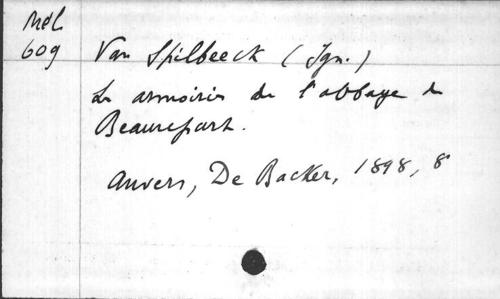 Mél
609
Van Spilbeeck (Ign.)
Les armoiries de l'abbaye de
Beaurepart.
Anvers, De Backer, 1898, 8°